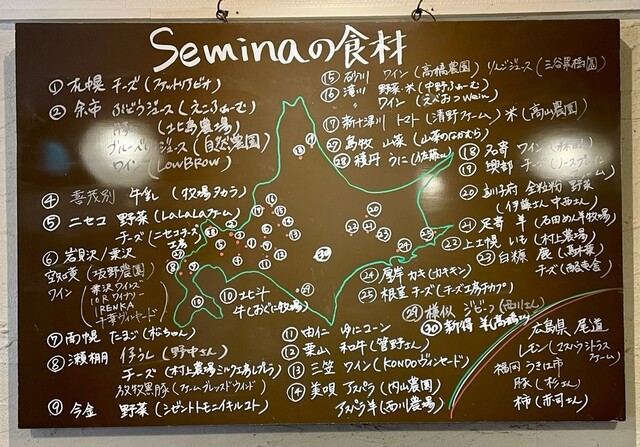 Seminaの食材
① 札幌 チーズ (ファットリアビオ)
② 余市 ぶどうジュース (えこふぁーむ)
(北島農場)
ジュース (自然農園)
ワイン (LOWBROW)
④ 喜茂別 牛乳 (牧場タカラ)
⑤ ニセコ 野菜 (LaLaLaファーム)
チーズ (ニセコチーズ工房)
⑥ 岩見沢/栗沢
宝水
ワイン
栗沢ワインズ
10Rワイナリー
IRENKA
千華ヴィンヤード
⑦ 南幌 たまご (松ちゃん)
⑧ 瀬棚 仔うし (野中さん)
チーズ (村上農場ミルク工房レプレラ)
放牧黒豚 (ファームブレッスドウィンド)
⑨ 今金 野菜 (シゼントトモニイキルコト)
⑩ 北斗
牛 (おぐに牧場)
⑪ 由仁 ゆにコーン
⑫ 栗山 和牛 (菅野さん)
⑬ 三笠 ワイン (KONDOヴィンヤード)
⑭ 美唄 アスパラ (内山農園)
アスパラ羊 (西川農場)
⑮ 砂川 ワイン (高橋農園) りんごジュース (三谷果樹園)
⑯ 滝川 野菜・米 (中野ふぁーむ)
ワイン (えべおつWein)
⑰ 新十津川 トマト (清野ファーム) 米 (高山農園)
㉗ 島牧 山菜 (山菜のなむら)
㉘ 積丹 うに (佐藤さん)
⑱ 名寄 ワイン
⑲ 興部 チーズ (ノースプレインファーム)
⑳ 訓子府 全粒粉 野菜
(伊藤さん 中西さん)
㉑ 足寄 羊 (石田めん羊牧場)
㉒ 上士幌 いも (村上農場)
㉓ 白糠 鹿 (馬木葉)
チーズ (酪恵舎)
㉔ 厚岸 カキ (カキキン)
㉕ 根室 チーズ (チーズ工房チカプ)
㉙ 様似 ジビーフ (西川さん)
㉚ 新得 羊 (高橋さん)
広島県 尾道
レモン (エスパシトラスファーム)
福岡 うきは市
豚 (杉さん)
柿 (赤司さん)